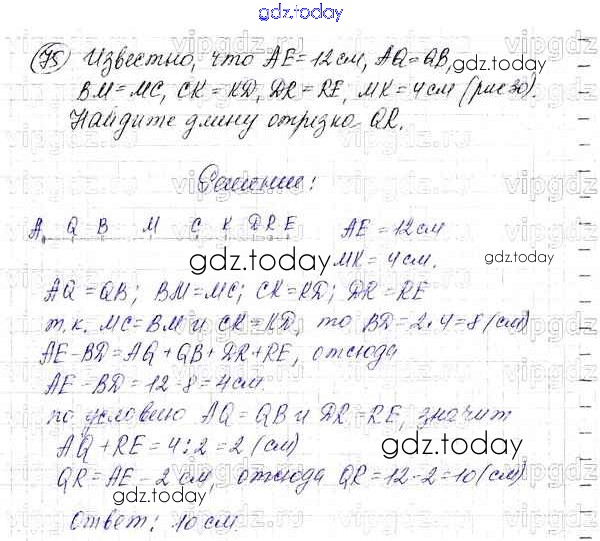 gdz.today
75 Известно, что AE = 12 см, AQ = QB, gdz.today
BM = MC, CK = KD, DR = RE, MK = 4 см (рис 30).
Найдите длину отрезка QR.
Решение:
A Q B M C K D R E AE = 12 см
gdz.today gdz.today
MK = 4 см.
AQ = QB; BM = MC; CK = KD; DR = RE
т.к. MC = BM и CK = KD, то BD = 2·4 = 8 (см)
AE - BD = AQ + QB + DR + RE, отсюда
AE - BD = 12 - 8 = 4 см
по условию AQ = QB и DR = RE, значит
AQ + RE = 4 : 2 = 2 (см) gdz.today
QR = AE - 2 см, отсюда QR = 12 - 2 = 10 (см)
gdz.today
Ответ: 10 см. gdz.today